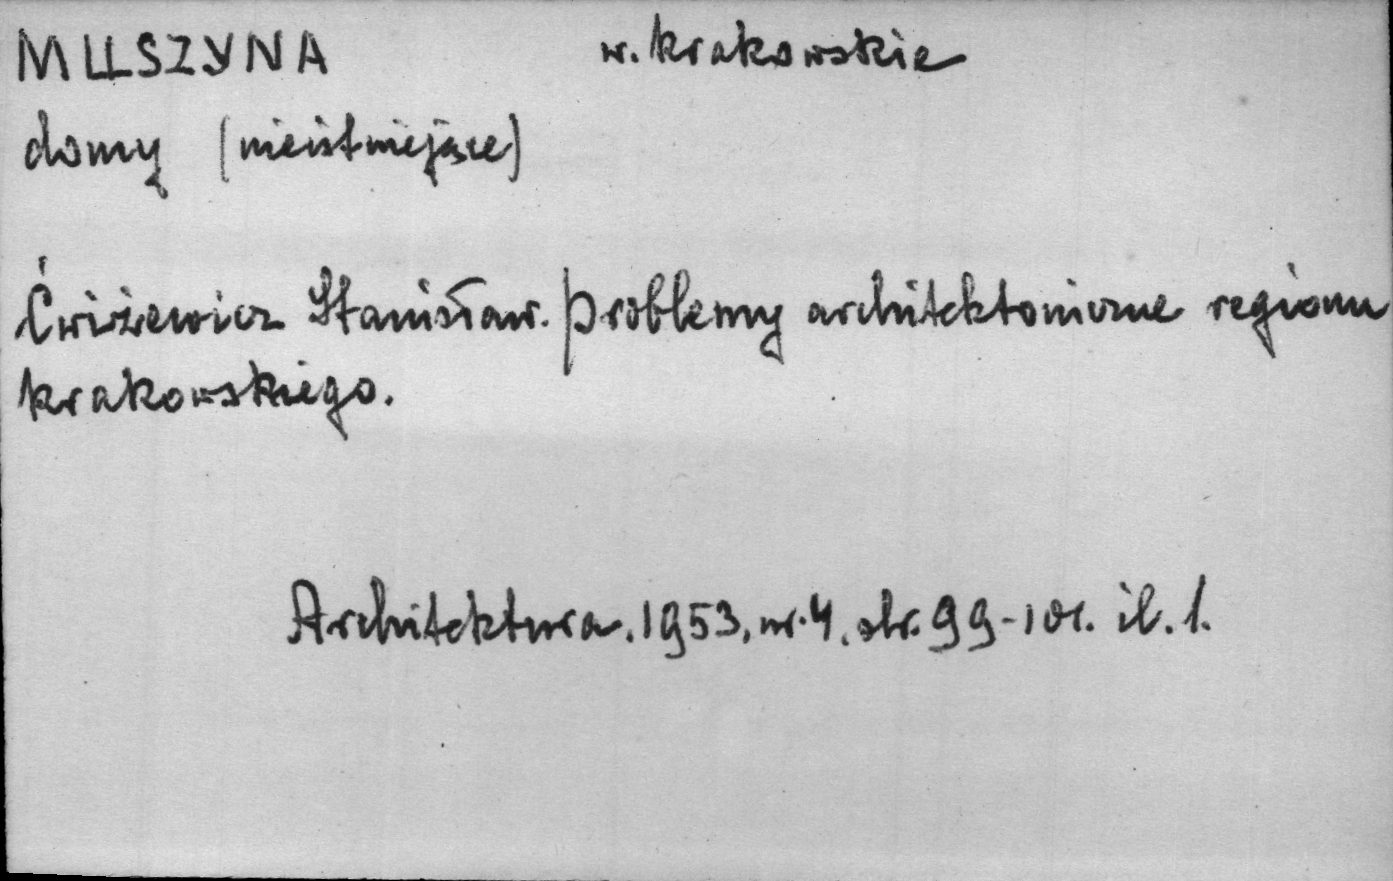 MUSZYNA w. krakowskie
domy (nieistniejące)
Ćwiżewicz Stanisław. Problemy architektoniczne regionu
krakowskiego.
Architektura. 1953, nr. 4, str. 99-101. il. 1.